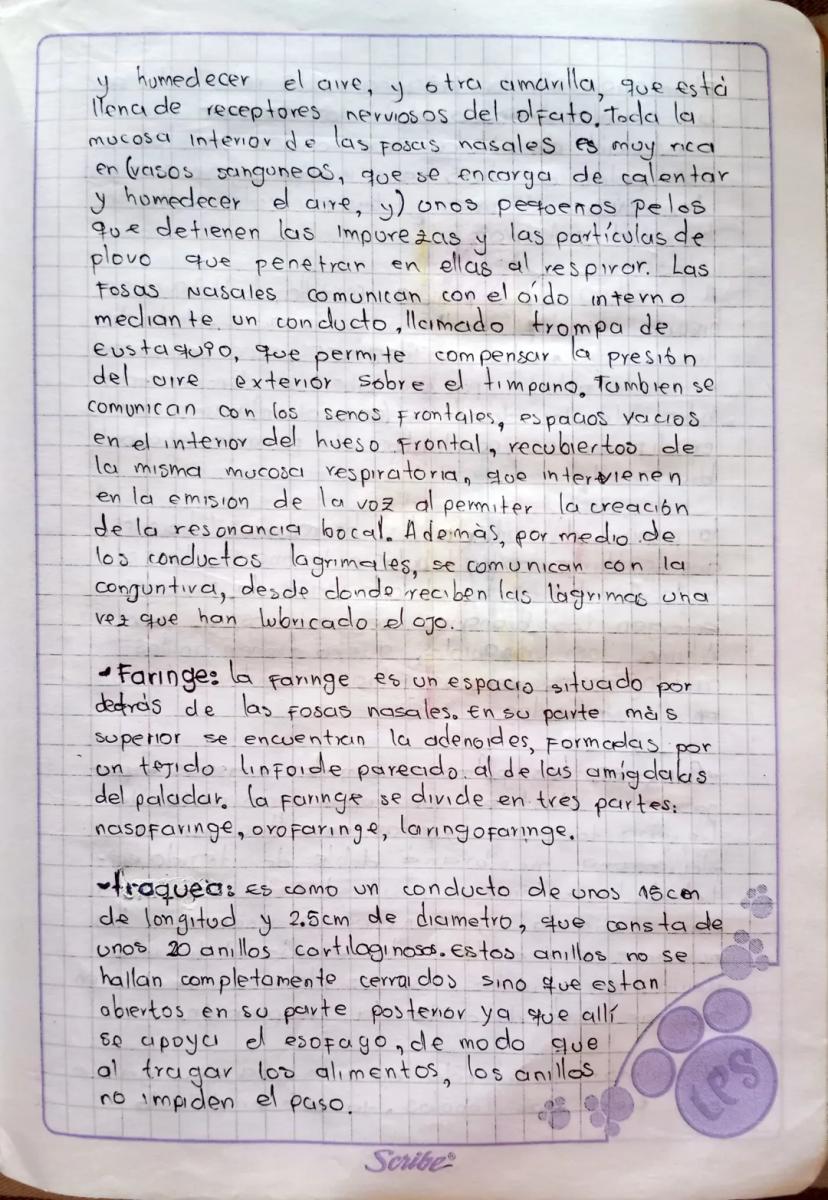 y humedecer el aire, y otra amarilla, que está
llena de receptores nerviosos del olfato. Toda la
mucosa interior de las fosas nasales es muy rica
en (vasos sanguneos, que se encarga de calentar
y homedecer el aire, y) unos pequenos pelos
que detienen las impurezas y las partículas de
plovo que penetran en ellas al respirar. Las
Fosas Nasales comunican con el oído interno
mediante un conducto, llamado trompa de
Eustaquio, que permite compensar la presión
del aire exterior sobre el timpano. Tambien se
comunican con los senos frontales, espacios vacios
en el interior del hueso frontal, recubiertos de
la misma mucosa respiratoria, que intervienen
en la emision de la voz al permiter la creación
de la resonancia bocal. Además, por medio de
los conductos lagrimales, se comunican con la
conguntiva, desde donde reciben las làgrimas una
vez que han lubricado el ojo.
- Faringe: la faringe es un espacio situado por
detrás de las fosas nasales. En su parte màs
superior se encuentran la adenoides, Formadas por
un tejido linfoide parecido al de las amígdalas
del paladar. la faringe se divide en tres partes:
nasofaringe, orofaringe, laringofaringe.
- traquea: Es como un conducto de unos 15cm
de longitud y 2.5cm de diametro, que consta de
unos 20 anillos cartilaginosos. Estos anillos no se
hallan completamente cerrados sino que estan
abiertos en su parte posterior ya que allí
se apoya el esofago, de modo que
al tragar los alimentos, los anillos
no impiden el paso.
LPS
Scribe®